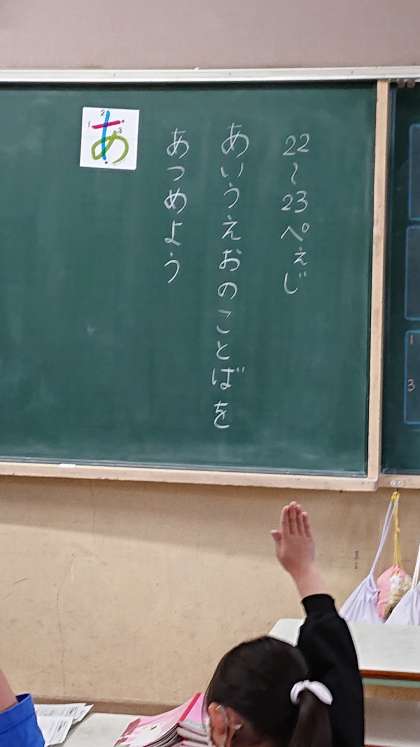 22~23ぺえじ
あいうえおのことばを
あつめよう
あ
1
2
3
1
3